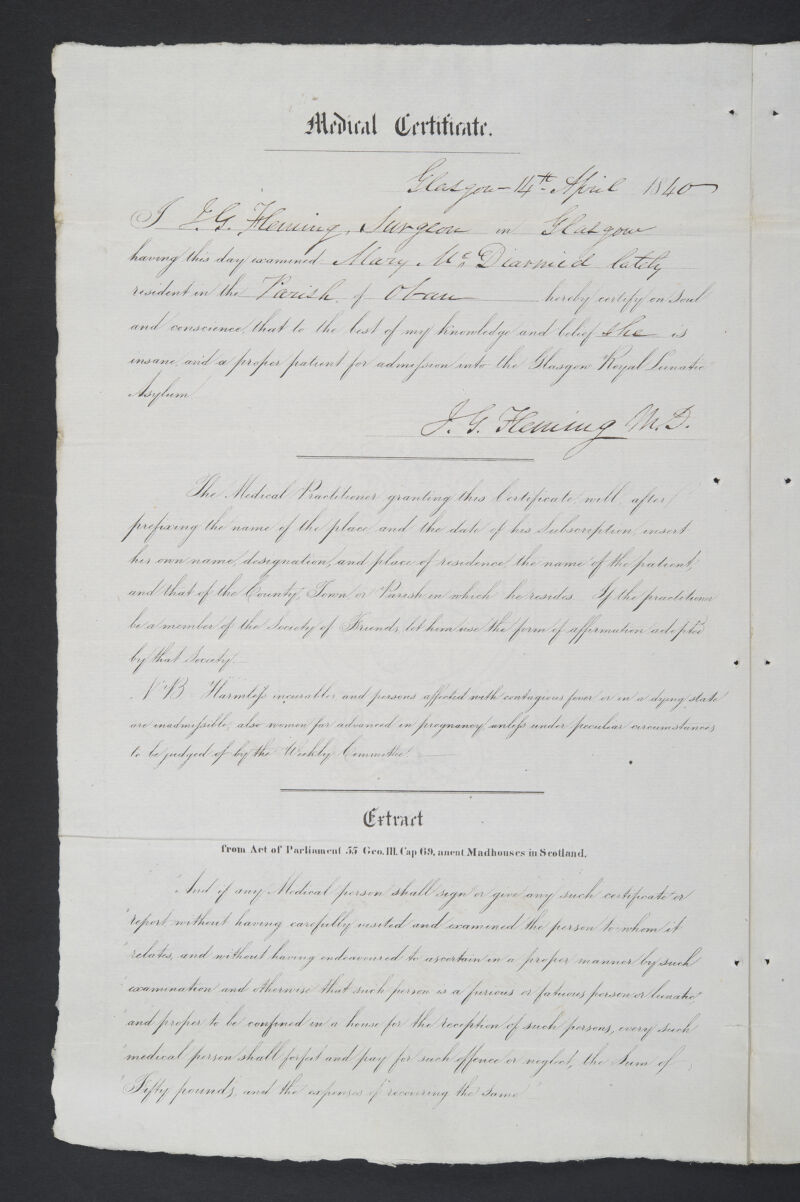 Medical Certificate.
Glasgow 14th April 1840
I J. G. Fleming, Surgeon in Glasgow
having this day examined Mary Mc Diarmid lately
resident in the Parish of Oban hereby certify on soul
and conscience, that to the best of my knowledge and belief she is
insane, and a proper patient for admission into the Glasgow Royal Lunatic
Asylum
J. G. Fleming M.D.
The Medical Practitioner granting this Certificate, will, after
prefixing the name of the place, and the date of his Subscription, insert
his own name, designation, and place of residence, the name of the patient,
and that of the County, Town or Parish in which he resides. If the practitioner
be a member of the Society of Friends, let him use the form of affirmation adopted
by that Society.
N.B. Harmless incurables and persons affected with contagious fever or in a dying state
are inadmissible, also women far advanced in pregnancy, unless under peculiar circumstances,
to be judged of by the Weekly Committee.
Extract
from Act of Parliament 55 Geo. III. Cap 69, anent Madhouses in Scotland.
"And if any Medical person shall sign or give any such certificate or
"report, without having carefully visited and examined the person to whom it
"relates, and without having endeavoured to ascertain in a proper manner by such
"examination and otherwise that such person is a furious or fatuous person or lunatic
"and proper to be confined in a house for the reception of such persons, every such
"medical person shall forfeit and pay for such offence or neglect, the Sum of
"Fifty pounds, and the expenses of recovering the same"